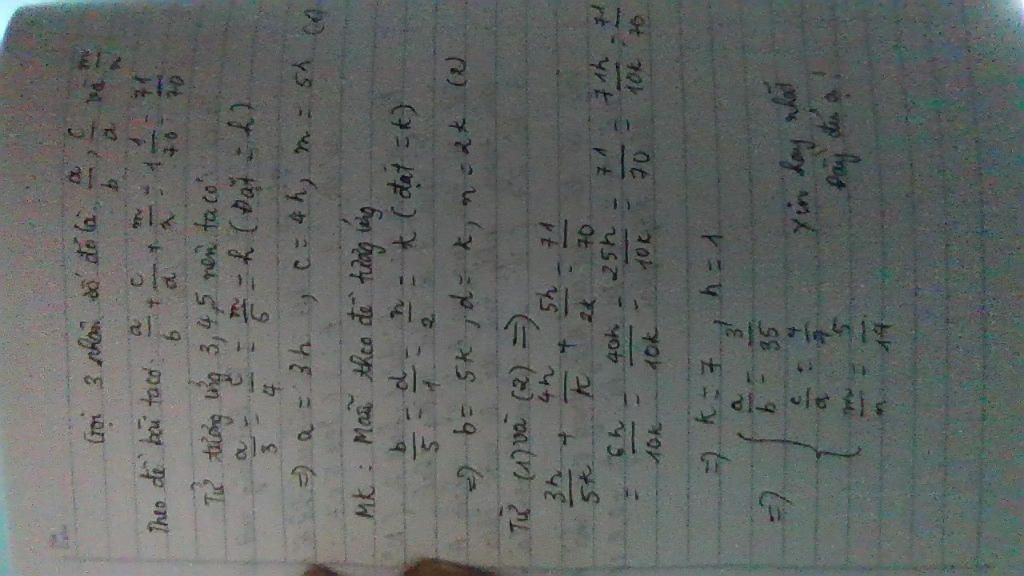 Gọi 3 phân số đó là a/b, c/d và m/n
Theo đề bài ta có: a/b + c/d + m/n = 1 1/70 = 71/70
Tử tương ứng 3, 4, 5 nên ta có:
a/3 = c/4 = m/5 = h (Đặt = h)
=> a = 3h, c = 4h, m = 5h (1)
Mk: Mẫu theo đề tương ứng
b/5 = d/1 = n/2 = k (đặt = k)
=> b = 5k, d = k, n = 2k (2)
Từ (1) và (2) =>
3h/5k + 4h/k + 5h/2k = 71/70
= 6h/10k = 40h/10k = 25h/10k = 71/70 = 71h/10k = 71/70
=> k = 7, h = 1
=> { a/b = 3/35
c/d = 4/7
m/n = 5/14
xin hay nhất
đầy đủ ạ!